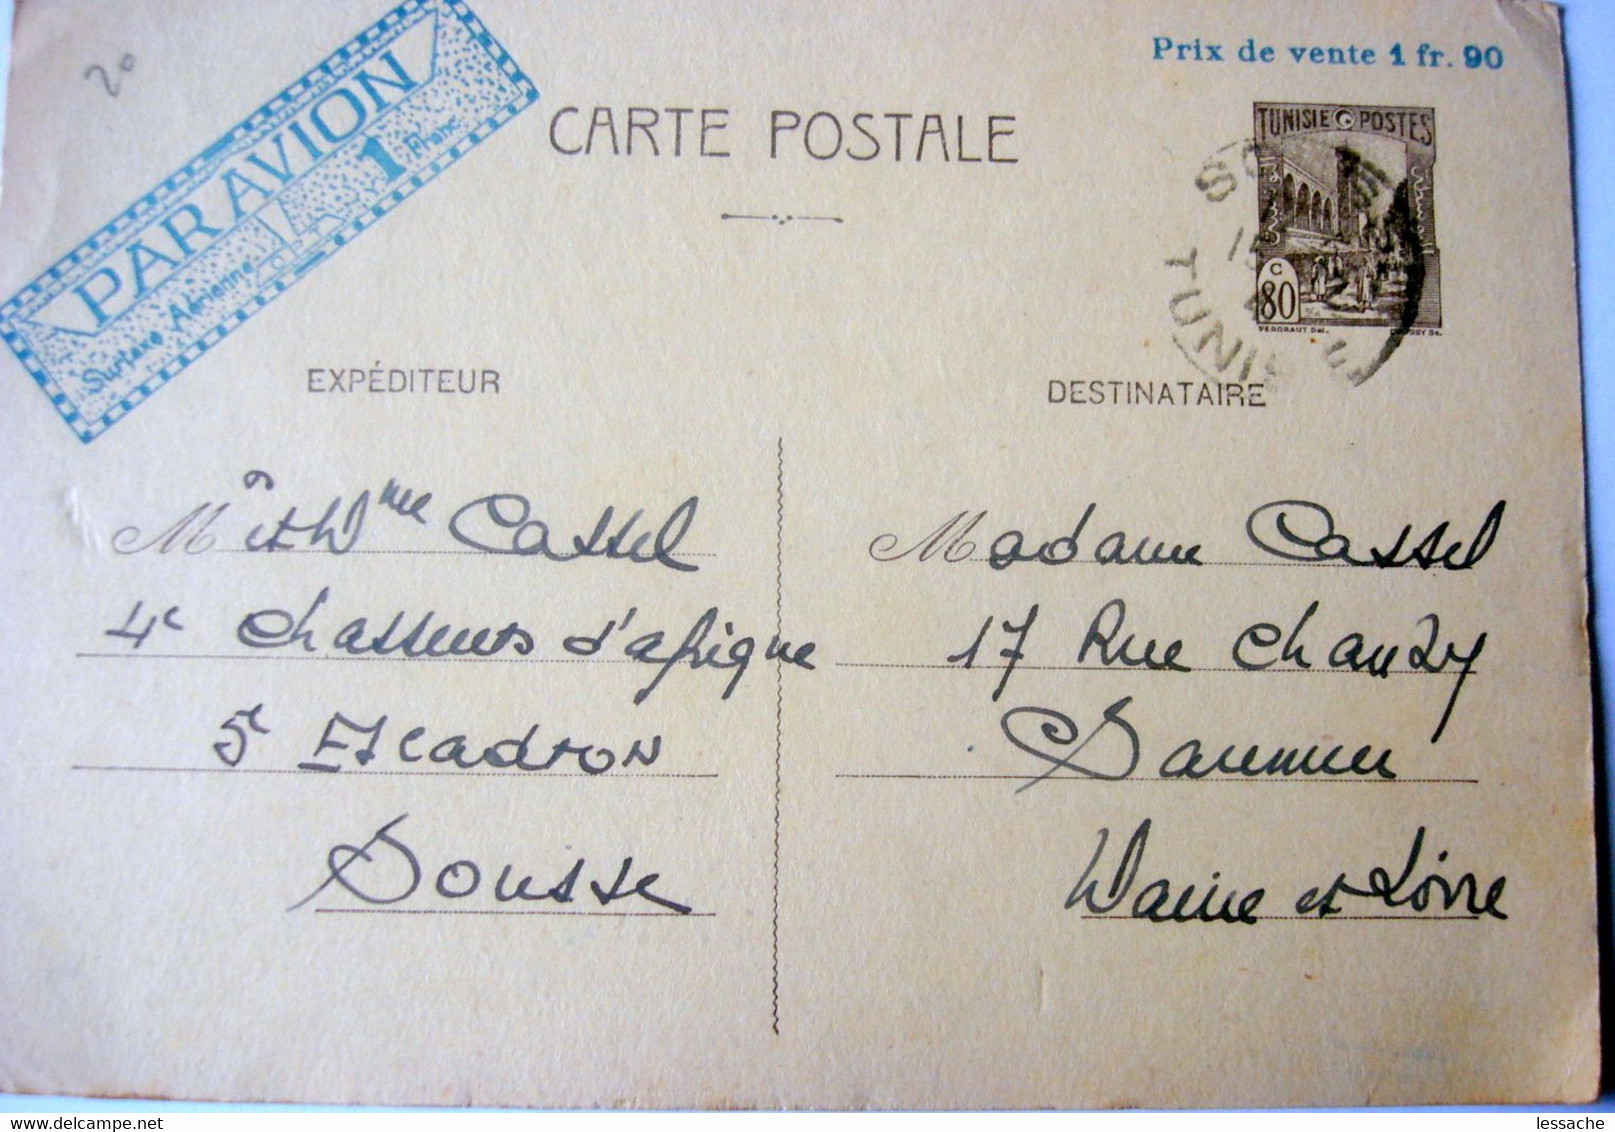 20
PAR AVION
Surtaxe Aérienne 1 Franc
CARTE POSTALE
Prix de vente 1 fr. 90
TUNISIE POSTES
c
80
TUNISIE
EXPÉDITEUR
Mr et Mme Cassel
4e Chasseurs d'afrique
5e Escadron
Sousse
DESTINATAIRE
Madame Cassel
17 Rue Chanzy
Saumur
Maine et Loire
Delcampe.net
lessache